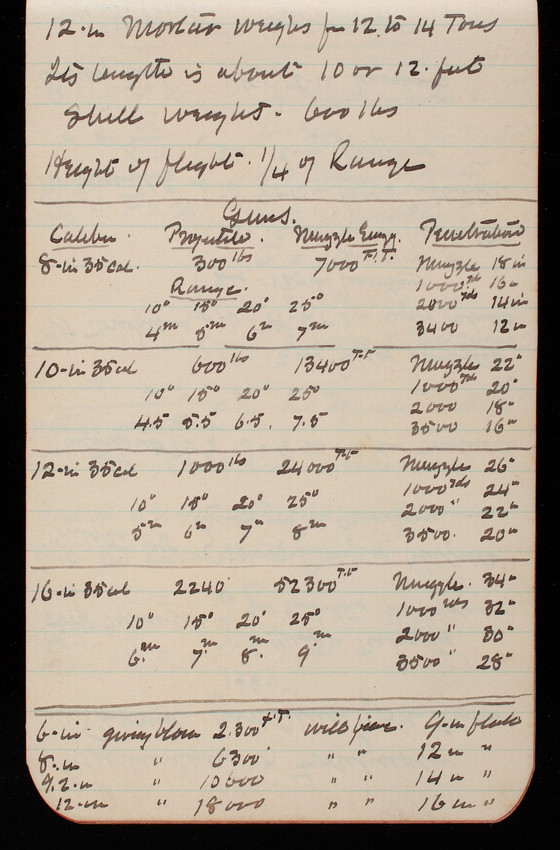 12-in Mortar weighs fm 12 to 14 Tons
Its length is about 10 or 12 feet
Shell weight - 600 lbs
Height of flight 1/4 of Range
Guns.
Caliber. Projectile. Muzzle Energy. Penetration
8-in 35 cal. 300 lbs 7000 F.T. Muzzle 18 in
Range. 1000 yds 16 "
10° 15° 20° 25° 2000 yds 14 in
4m 5m 6m 7m 3400 12 in
10-in 35 cal 600 lbs 13400 T-F Muzzle 22"
10° 15° 20° 25° 1000 yds 20"
2000 18"
4.5 5.5 6.5. 7.5 3500 16"
12-in 35 cal 1000 lbs 24000 T-F Muzzle 26"
1000 yds 24"
10° 15° 20° 25° 2000 " 22"
5m 6m 7m 8m 3500. 20"
16-in 35 cal 2240 52300 T-F Muzzle. 34"
10° 15° 20° 25° 1000 yds 32"
2000 " 30"
6.m 7.m 8.m 9m 3500 " 28"
6-in giving blow 2.300 F.T. will pierce. 9-in plate
8-in " 6300 " " 12 in "
9.2-in " 10600 " " 14 in "
12-in " 18000 " " 16 in "